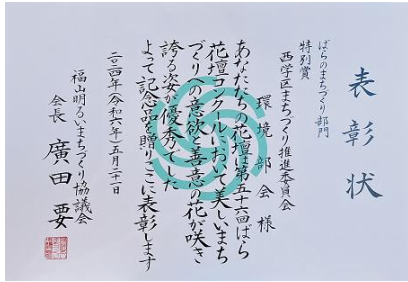 表彰状
ばらのまちづくり部門
特別賞
西学区まちづくり推進委員会
環境部会様
あなたたちの花壇は第五十六回ばら
花壇コンクールにおいて美しいまち
づくりへの意欲と善意の花が咲き
誇る姿が優秀でした
よって記念品を贈りここに表彰します
二〇二四年(令和六年)五月二十一日
福山明るいまちづくり協議会
会長 廣田要